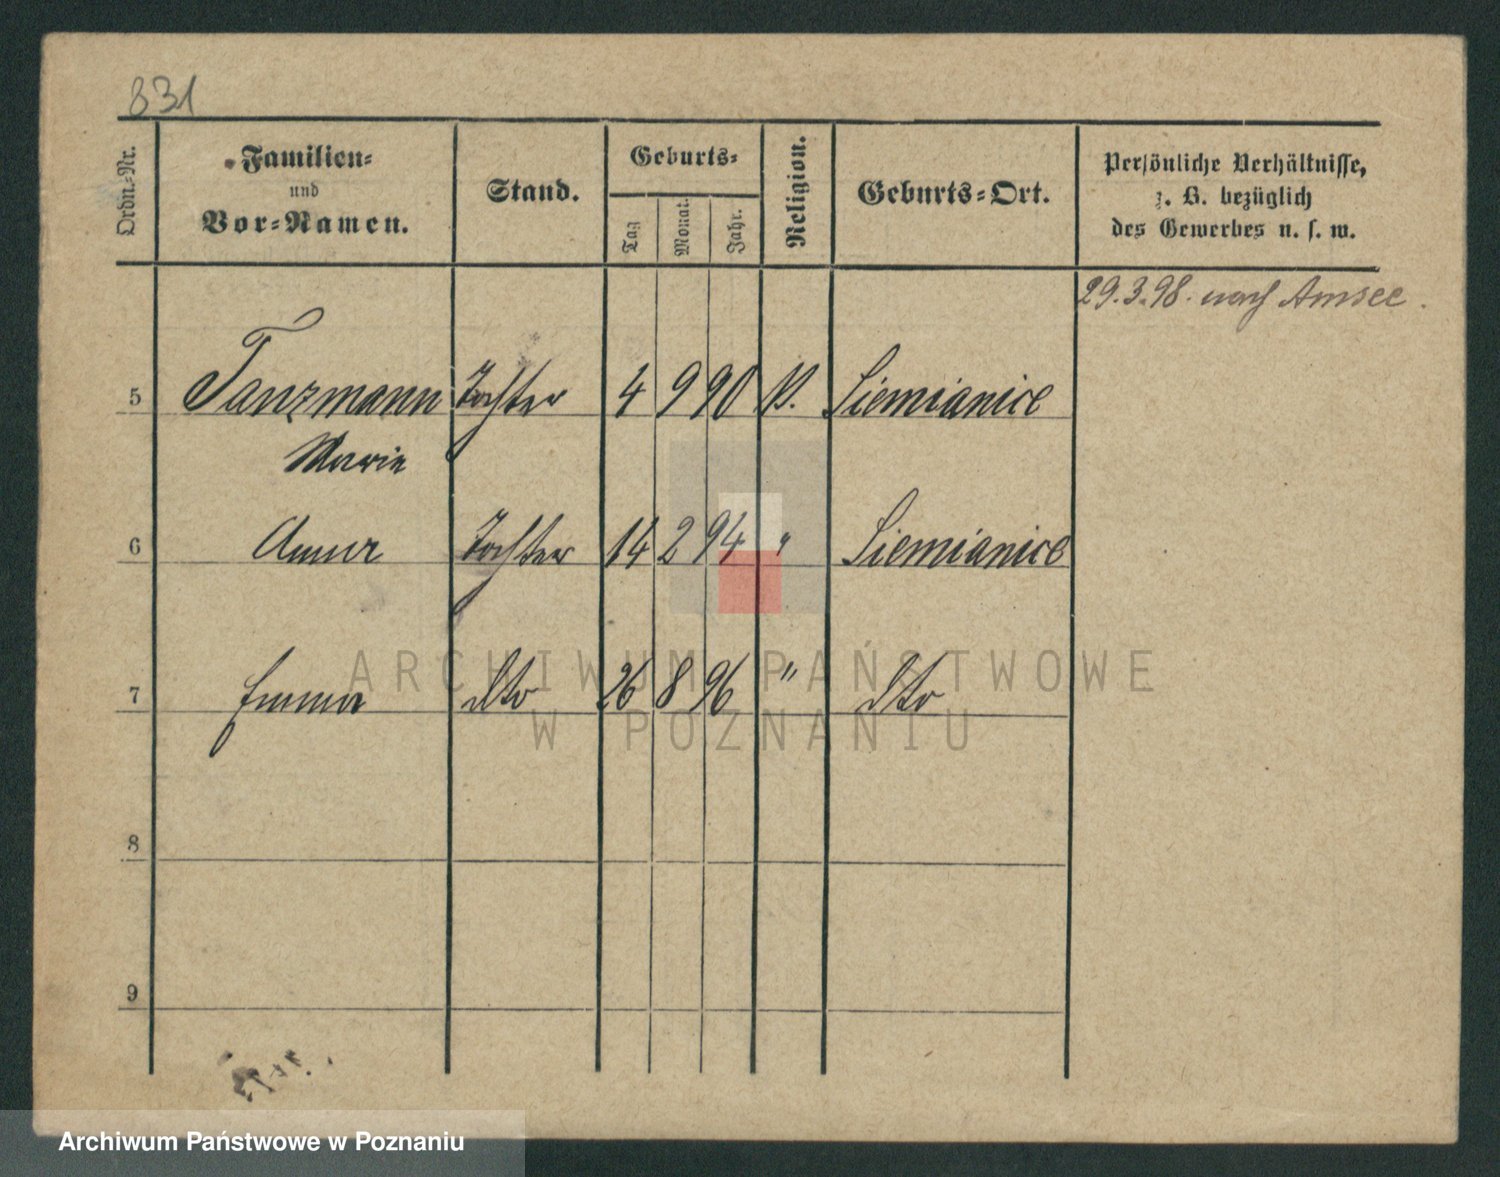 831
Ordn.-Nr.
Familien-
und
Vor-Namen.
Stand.
Geburts-
Tag
Monat.
Jahr.
Religion.
Geburts-Ort.
Persönliche Verhältnisse,
z. B. bezüglich
des Gewerbes u. s. w.
29.3.98. nach Amsee.
5 Tanzmann Tochter 4 9 90 Siemianice
Marie
6 Anna Tochter 14 2 94 " Siemianice
7 Emma dto 26 8 96 " dto
8
9
ARCHIWUM PAŃSTWOWE
W POZNANIU
Archiwum Państwowe w Poznaniu